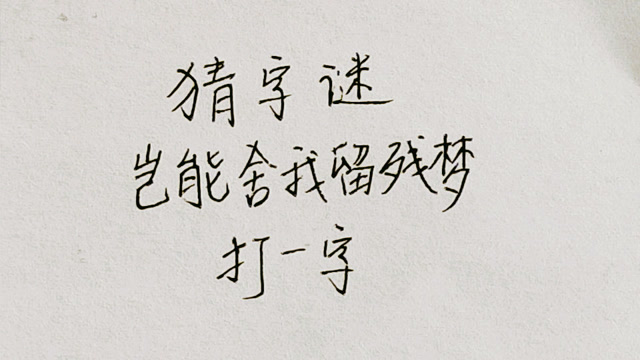 猜字谜
岂能舍我留残梦
打一字